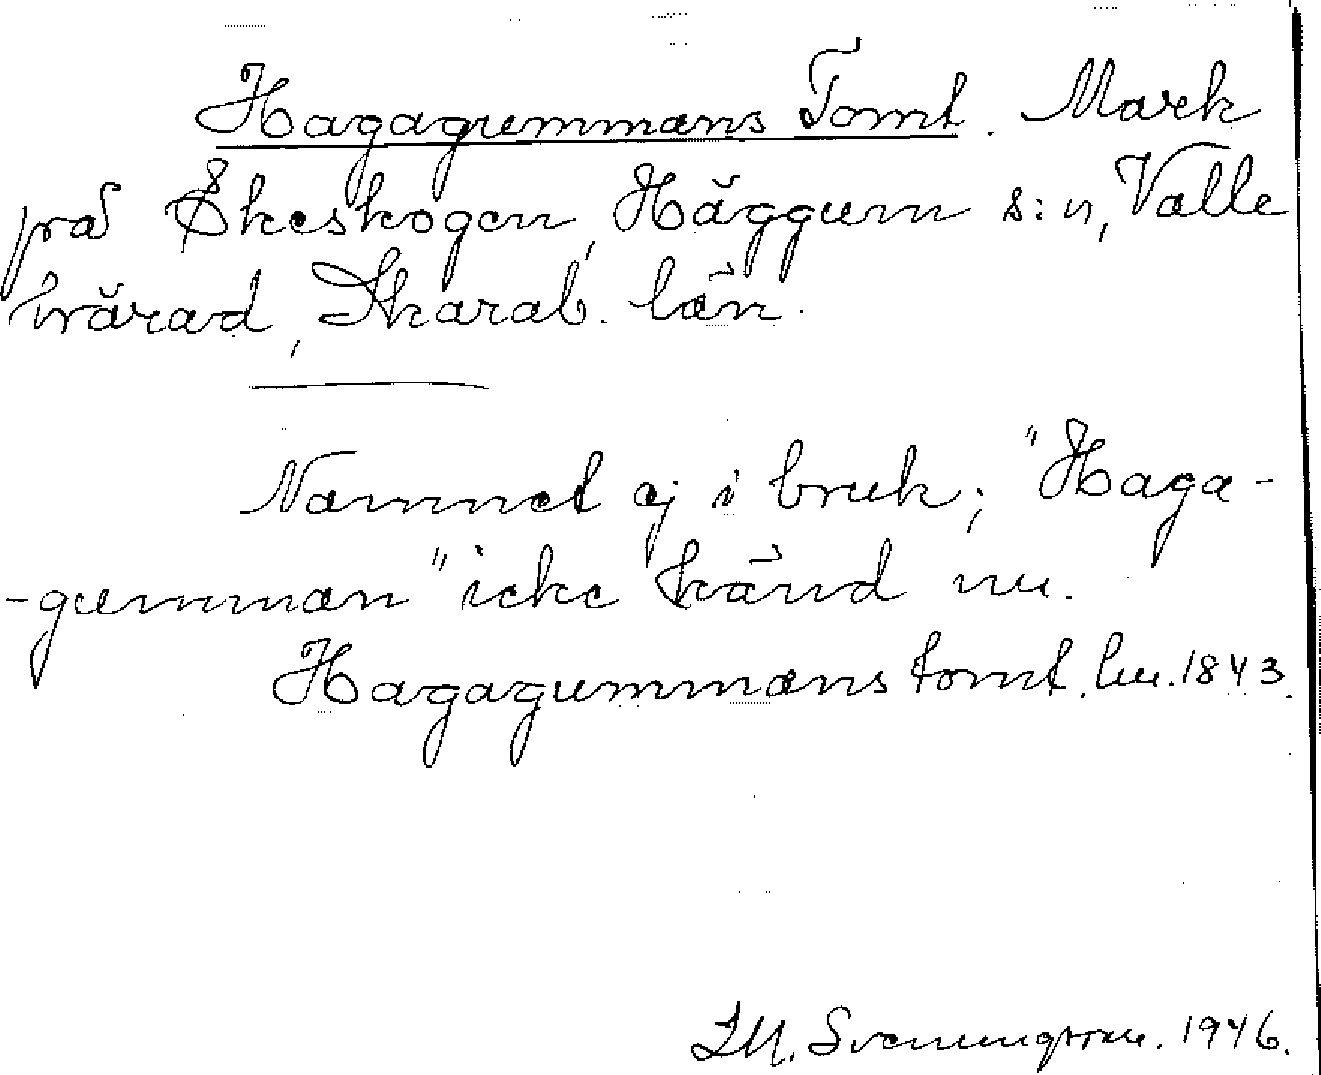 Hagagummans Tomt. Mark
på Ekeskogen, Häggum s:n, Valle
härad, Skarab. län.
Namnet ej i bruk; "Haga-
-gumman" icke känd nu.
Hagagummans tomt. lm. 1843.
Svenungsson. 1946.